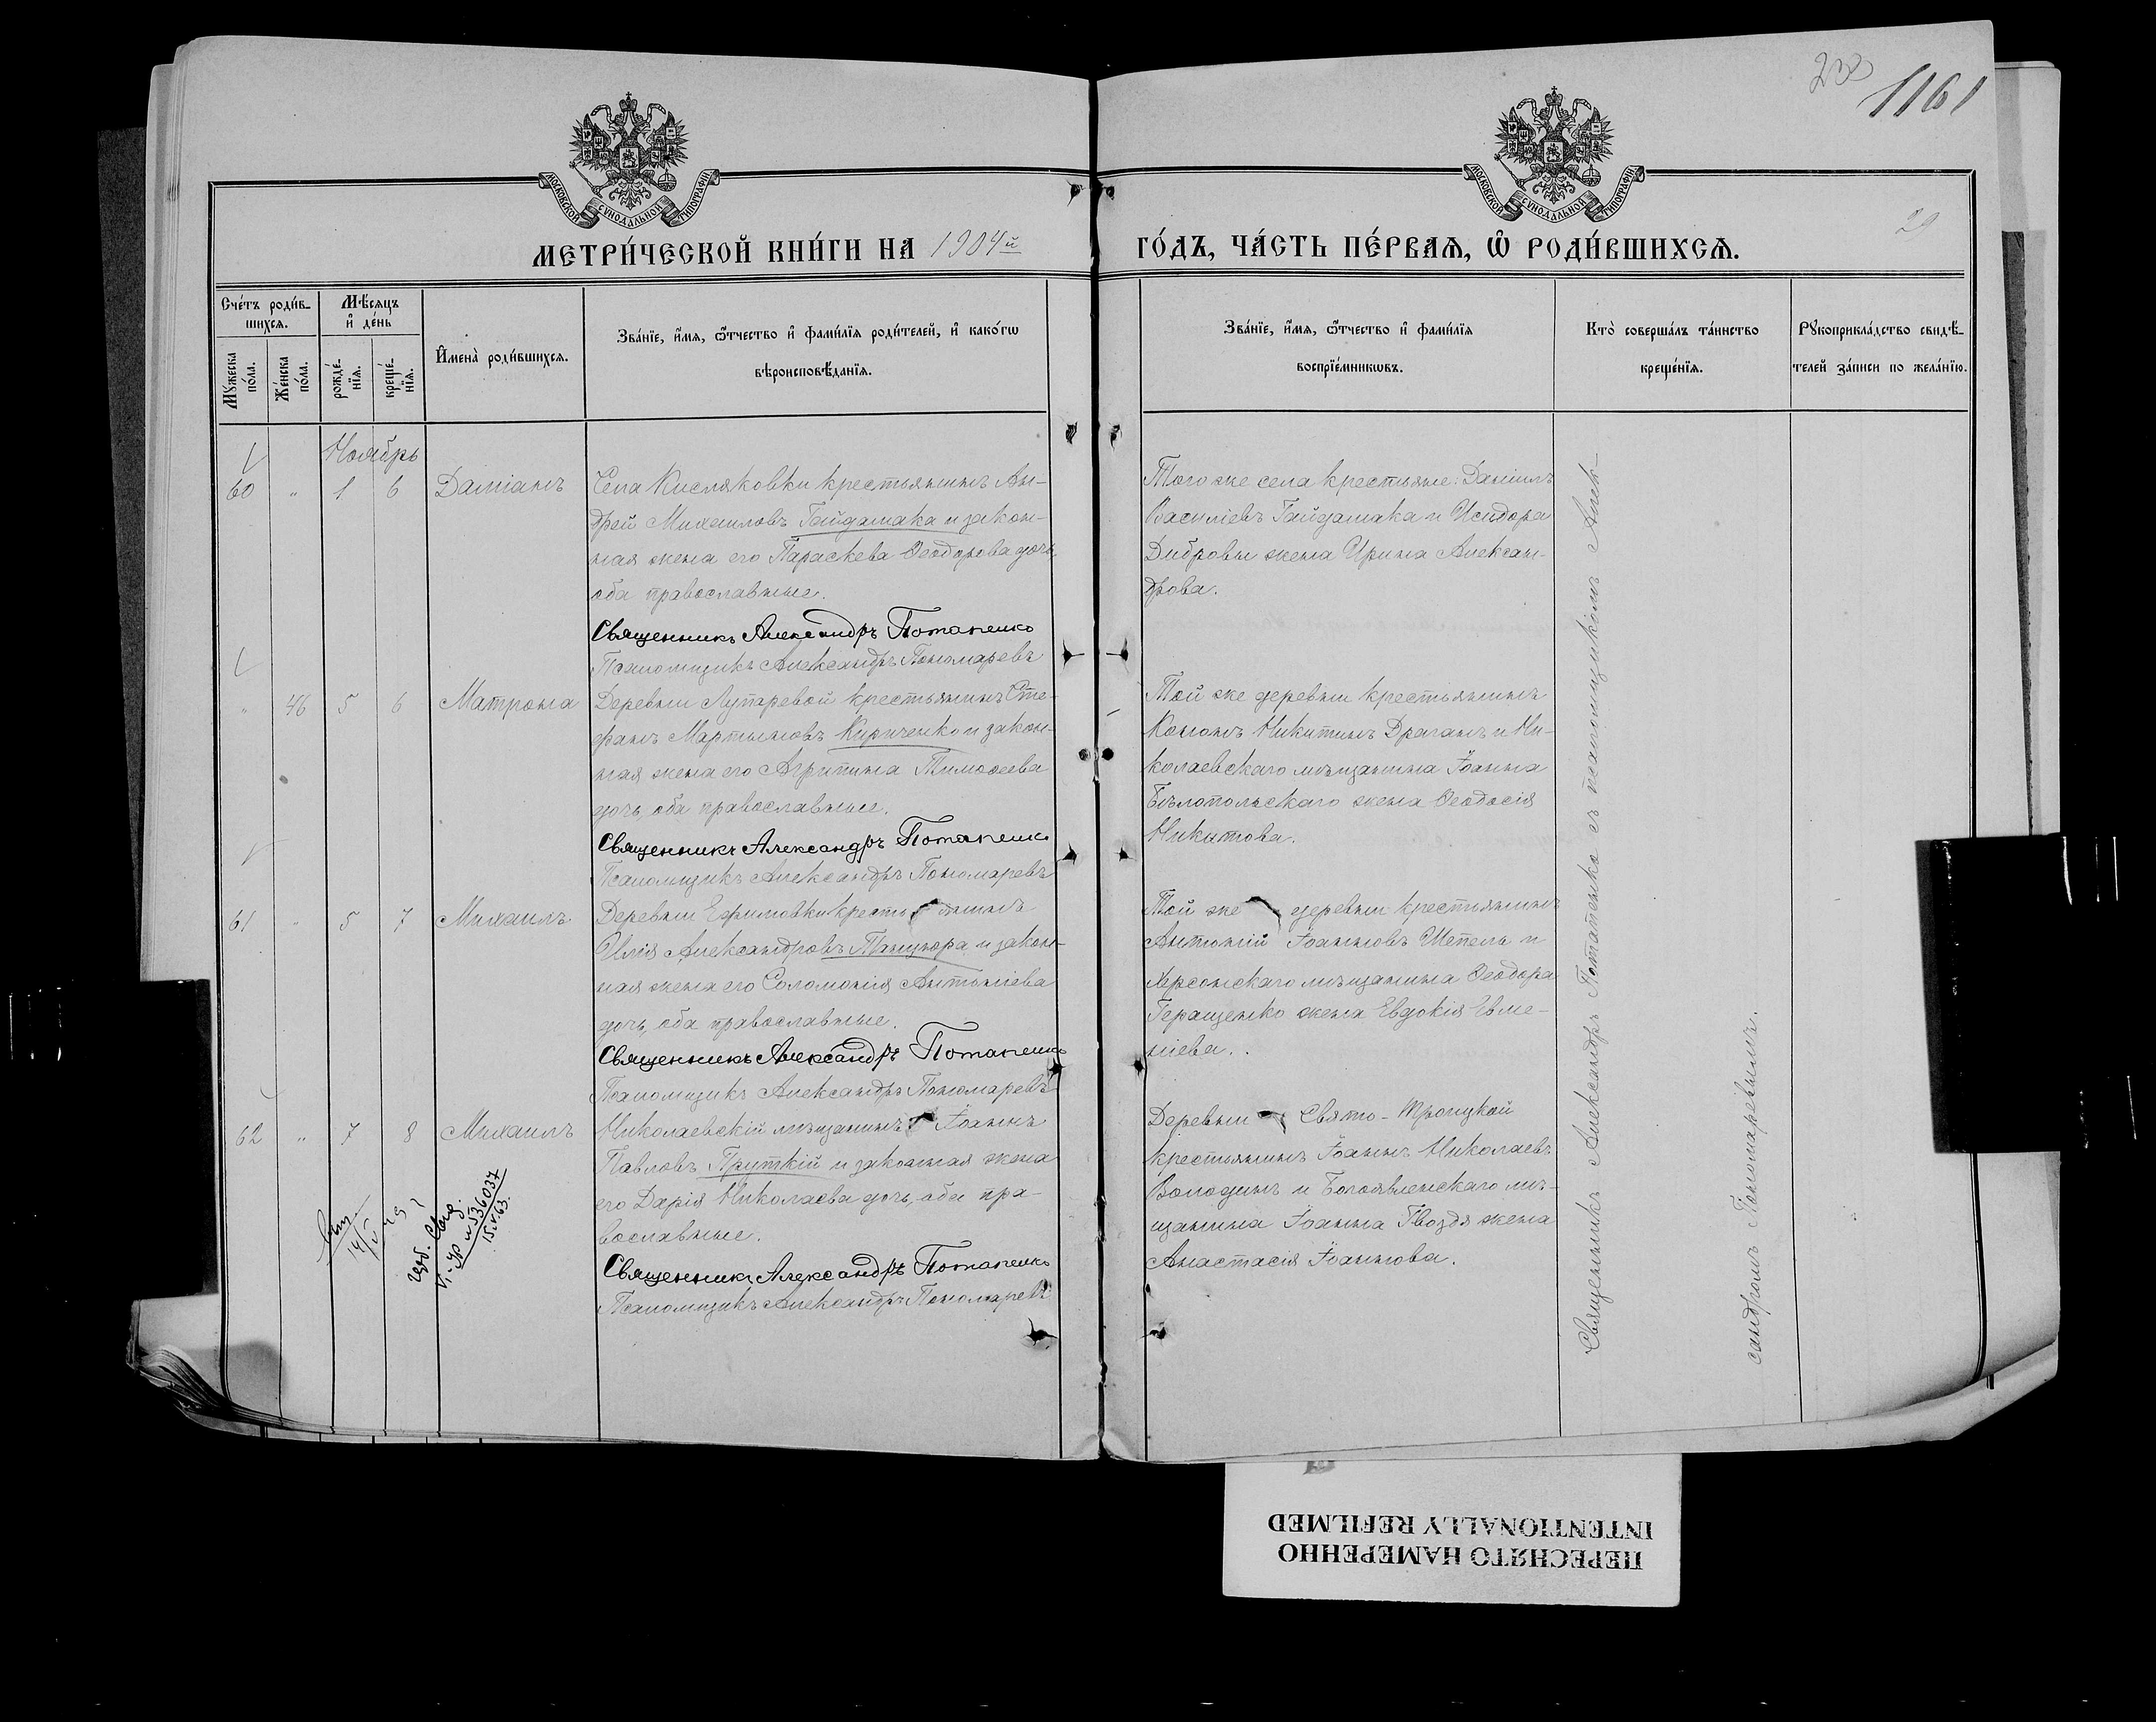 230
1161
29
МОСКОВСКОЙ СѴНОДАЛЬНОЙ ТИПОГРАФІИ
МОСКОВСКОЙ СѴНОДАЛЬНОЙ ТИПОГРАФІИ
МЕТРИ́ЧЕСКОЙ КНИ́ГИ НА 1904й
ГО́ДЪ, ЧА́СТЬ ПЕ́РВАѦ, Ѽ РОДИ́ВШИХСѦ.
Сче́тъ роди́в-
шихсѧ.
Мѣ́сѧцъ
и҆ де́нь
Мꙋ́жеска
по́ла.
Же́нска
по́ла.
рожде́-
нїѧ.
креще́-
нїѧ.
И҆мена̀ роди́вшихсѧ.
Зва́нїе, и҆́мѧ, ѻ҆́тчество и҆ фами́лїѧ роди́телей, и҆ како́гѡ
вѣроисповѣ́данїѧ.
Зва́нїе, и҆́мѧ, ѻ҆́тчество и҆ фами́лїѧ
воспрїе́мникѡвъ.
Кто̀ соверша́лъ та́инство
креще́нїѧ.
Рꙋкоприкла́дство свидѣ́-
телей за́писи по жела́нїю.
Ноябрь
60 " 1 6 Даміанъ
Села Кисляковки крестьянинъ Ан-
дрей Михаиловъ Гайдамака и закон-
ная жена его Параскева Ѳеодорова дочь,
оба православные.
Священникъ Александръ Потапенко
Псаломщикъ Александръ Пономаревъ
Того же села крестьяне: Даніилъ
Василіевъ Гайдамака и Исидора
Дибровы жена Ирина Алексан-
дрова.
" 46 5 6 Матрона
Деревни Лупаревой крестьянинъ Сте-
фанъ Мартыновъ Кириченко и закон-
ная жена его Агрипина Тимоѳеева
дочь, оба православные.
Священникъ Александръ Потапенко
Псаломщикъ Александръ Пономаревъ
Той же деревни крестьянинъ
Кононъ Никитинъ Драганъ и Ни-
колаевскаго мѣщанина Іоанна
Бѣлопольскаго жена Ѳеодосія
Никитова.
61 " 5 7 Михаилъ
Деревни Ефимовки крестьянинъ
Александровъ и закон-
ная жена его Соломонія Антоніева
дочь, оба православные.
Священникъ Александръ Потапенко
Псаломщикъ Александръ Пономаревъ
Той же деревни крестьянинъ
Антоній Іоанновъ Шепель и
Херсонскаго мѣщанина Ѳеодора
Геращенко жена Евдокія Евме-
ніева.
62 " 7 8 Михаилъ
Николаевскій мѣщанинъ Іоаннъ
Павловъ Пруткій и законная жена
его Дарія Николаева дочь, оба пра-
вославные.
Священникъ Александръ Потапенко
Псаломщикъ Александръ Пономаревъ
Деревни Свято-Троицкой
крестьянинъ Іоаннъ Николаевъ
Володинъ и Богоявленскаго мѣ-
щанина Іоанна Гвоздя жена
Анастасія Іоаннова.
V.-УР № 536037
15.V.63.
Священникъ Александръ Потапенко съ псаломщикомъ Алек-
сандромъ Пономаревымъ.
ПЕРЕСНЯТО НАМЕРЕННО
INTENTIONALLY REFILMED